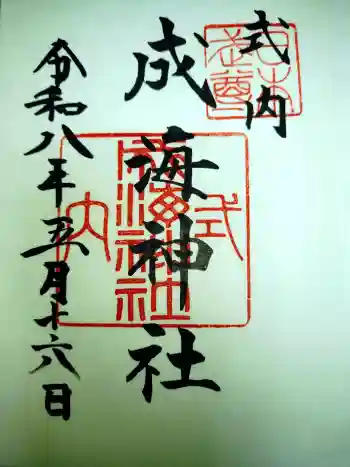 式内
成海神社
令和八年五月十六日
式
成海神社
内